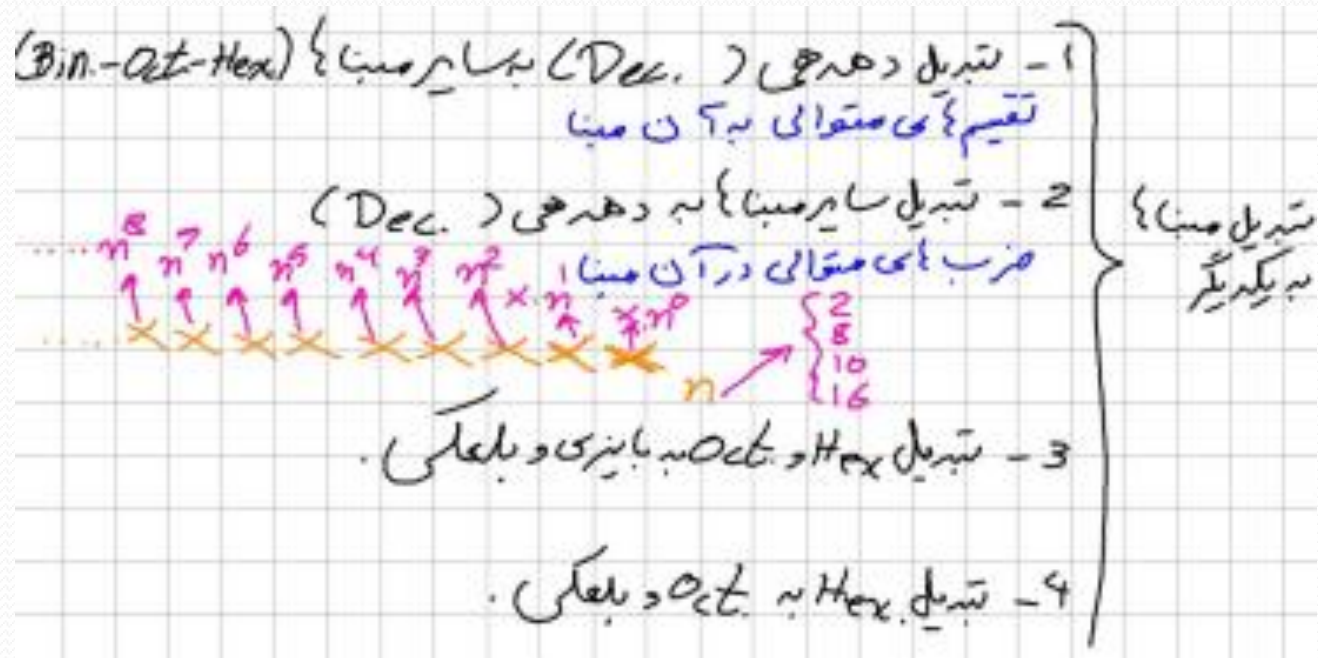 تبدیل مبناها
به یکدیگر
1- تبدیل دهدهی (Dec. ) به سایر مبناها (Bin.-Oct-Hex)
تقسیم‌های متوالی به آن مبنا
2- تبدیل سایر مبناها به دهدهی (Dec. )
ضرب‌های متوالی در آن مبنا
.... n⁸ n⁷ n⁶ n⁵ n⁴ n³ n² ×.n¹ ×.n⁰
..... × × × × × × × × ×
n
2
8
10
16
3- تبدیل Hex و Oct. به باینری و بلعکس.
4- تبدیل Hex. به Oct. و بلعکس.